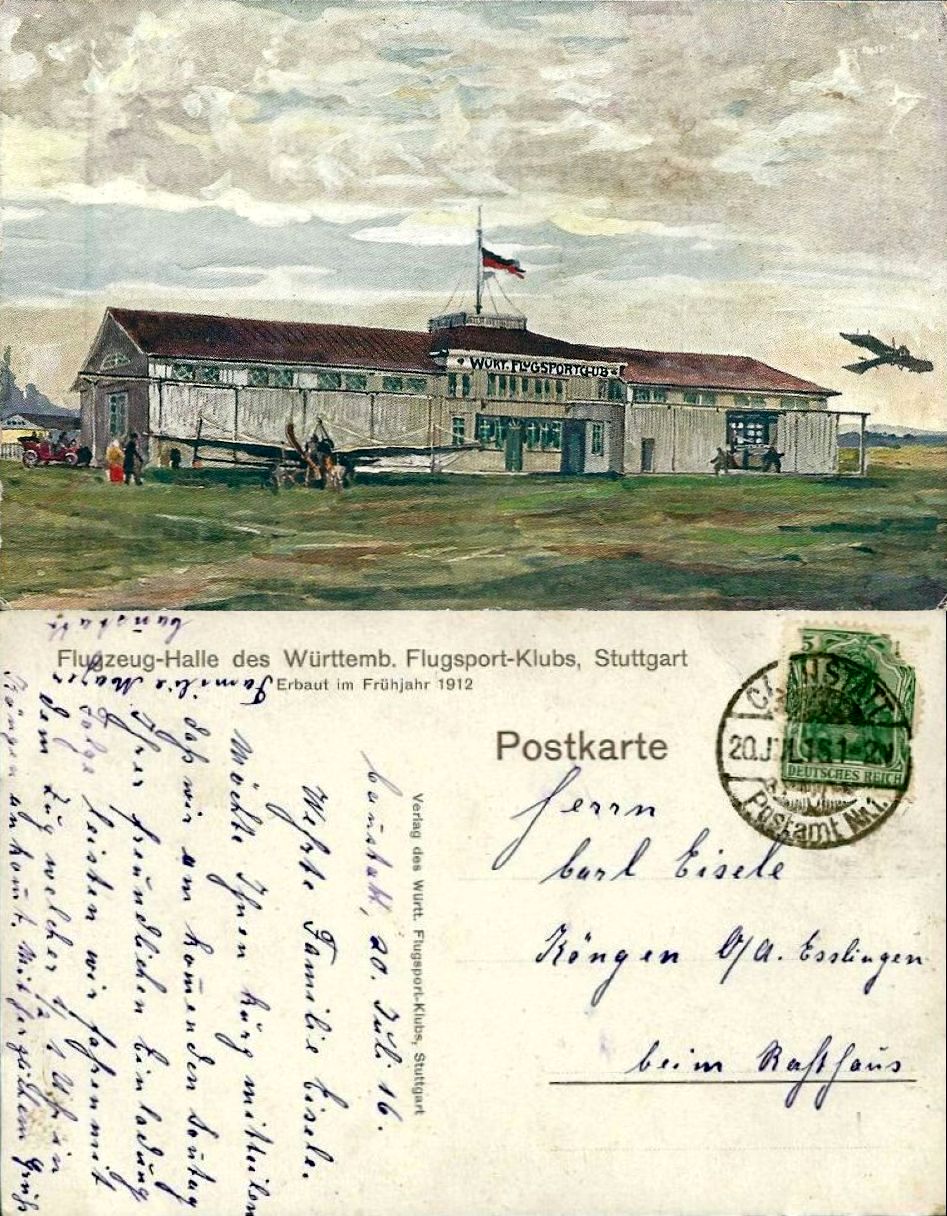 WÜRT. FLUGSPORTCLUB
Flugzeug-Halle des Württemb. Flugsport-Klubs, Stuttgart
Erbaut im Frühjahr 1912
Postkarte
5
DEUTSCHES REICH
CANNSTATT
20.JUL.16.1-2N
Postamt Nr.1.
Herrn
Carl Eisele
Köngen O/A. Esslingen
beim Rathhaus
Verlag des Württ. Flugsport-Klubs, Stuttgart
Cannstatt, 20. Juli. 16.
Werte Familie Eisele.
Möchte Ihnen kurz mitteilen
daß wir am kom̄enden Sontag
Ihrer freundlichen Einladung
Folge leisten wir fahren mit
dem Zug welcher 1/2 1 Uhr in
Köngen ankom̄t. Mit herzlichem Gruß
Familie Mayer
Canstatt